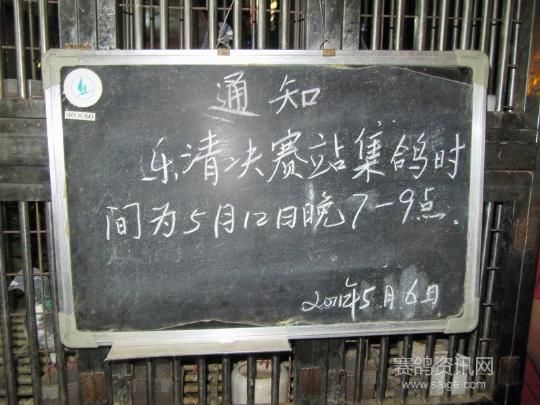 40×60
通知
乐清决赛站集鸽时
间为5月12日晚7-9点.
2012年5月6日
赛鸽资讯网
www.saige.com